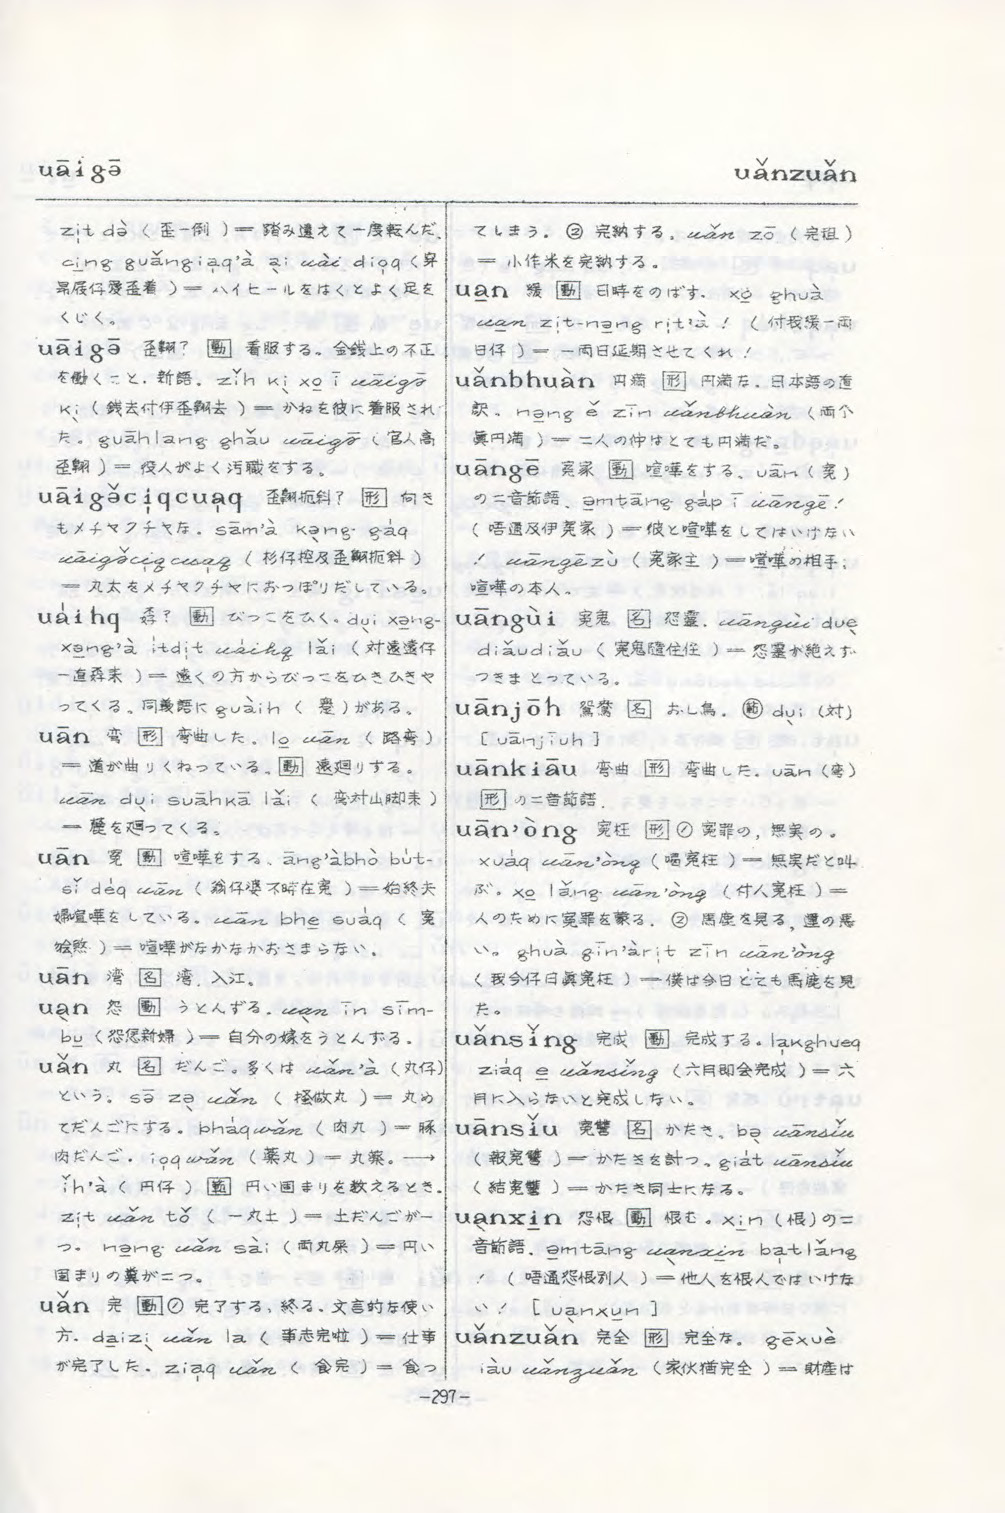 uāigə̄
uǎnzuǎn
zi̍t dà (歪一倒)＝踏み違えて一度転んだ.
cīng guǎngia̍q'à ai uài dio̍q (穿
昇屐仔愛歪着)＝ハイヒールをはくとよく足を
くじく。
uāigə̄ 歪翱? 動 着服する。金銭上の不正
を働くこと. 新語. zǐh kị xọ ī uāigə̄
kị (銭去付伊歪翱去)＝かねを彼に着服され
た. guāhlang ghǎu uāigə̄ (官人高
歪翱)＝役人がよく汚職をする。
uāigə̌cịqcuạq 歪翱扼斜? 形 向き
もメチャクチャな. sām'à kạng gáq
uāigə̌cịqcuạq (杉仔控及歪翱扼斜)
＝丸太をメチャクチャにおっぽりだしている。
uáihq 孬? 動 びっこをひく. dụi xəng-
xəng'à ítdịt uáihq lǎi (対遠遠仔
一直孬来)＝遠くの方からびっこをひきひきや
ってくる. 同義語に guàih ( )がある。
uān 弯 形 弯曲した. lo uān (路弯)
＝道が曲りくねっている. 動 遠廻りする。
uān dụi suāhkā lǎi (弯対山脚来)
＝麓を廻ってくる。
uān 冤 動 喧嘩をする. āng'àbhò bút-
sǐ déq uān (翁仔婆不時在冤)＝始終夫
婦喧嘩をしている。uān bhe suáq (冤
煞)＝喧嘩がなかなかおさまらない.
uān 湾 名 湾. 入江.
uạn 怨 動 うとんずる. uạn īn sīm-
bu (怨恁新婦)＝自分の嫁をうとんずる.
uǎn 丸 名 だんご. 多くは uǎn'à (丸仔)
という. sə̄ zə uǎn (挼做丸)＝丸め
てだんごにする. bháquǎn (肉丸)＝豚
肉だんご. ioquǎn (薬丸)＝丸薬. →
ǐh'à (円仔) 数 円い固まりを数えるとき.
zịt uǎn tǒ (一丸土)＝土だんごが一
つ. nəng uǎn sài (両丸屎)＝円い
固まりの糞が二つ。
uǎn 完 動① 完了する, 終る. 文言的な使い
方. daizị uǎn la (事志完啦)＝仕事
が完了した. ziaq uǎn (食完)＝食っ
てしまう. ② 完納する. uǎn zō (完租)
＝小作米を完納する。
uan 緩 動 日時をのばす. xo ghuà
uan zịt-nəng rịt'à! (付我緩一両
日仔)＝一両日延期させてくれ!
uǎnbhuàn 円満 形 円満な. 日本語の直
訳. nəng ě zīn uǎnbhuàn (両个
眞円満)＝二人の仲はとても円満だ。
uāngē 冤家 動 喧嘩をする. uān (冤)
の二音節語. əmtāng gáp ī uāngē!
(唔通及伊冤家)＝彼と喧嘩をしてはいけない
! uāngēzù (冤家主)＝喧嘩の相手;
喧嘩の本人。
uāngùi 冤鬼 名 怨霊. uāngùi duẹ
diǎudiǎu (冤鬼隨住住)＝怨霊が絶えず
つきまとっている。
uānjōh 鴛鴦 名 おし鳥. 数 dụi (対)
[uānjiuh]
uānkiāu 弯曲 形 弯曲した. uān (弯)
形 の二音節語.
uān'òng 冤枉 形① 冤罪の, 無実の.
xuáq uān'òng (喝冤枉)＝無実だと叫
ぶ. xo lǎng uān'òng (付人冤枉)＝
人のために冤罪を蒙る. ② 馬鹿を見る, 運の悪
い。ghuà gīn'àrịt zīn uān'òng
(我今仔日眞冤枉)＝僕は今日とても馬鹿を見
た。
uǎnsǐng 完成 動 完成する. lạkghueq
ziáq e uǎnsǐng (六月即会完成)＝六
月に入らないと完成しない.
uānsǐu 冤讐 名 かたき. bə uānsǐu
(報冤讐)＝かたきを討つ. giát uānsǐu
(結冤讐)＝かたき同士になる.
uạnxin 怨恨 動 恨む. xin (恨)の二
音節語. əmtāng uạnxin batlǎng
! (唔通怨恨別人)＝他人を恨んではいけな
い! [uạnxun]
uǎnzuǎn 完全 形 完全な. gēxuè
iàu uǎnzuǎn (家伙猶完全)＝財産は
-297-